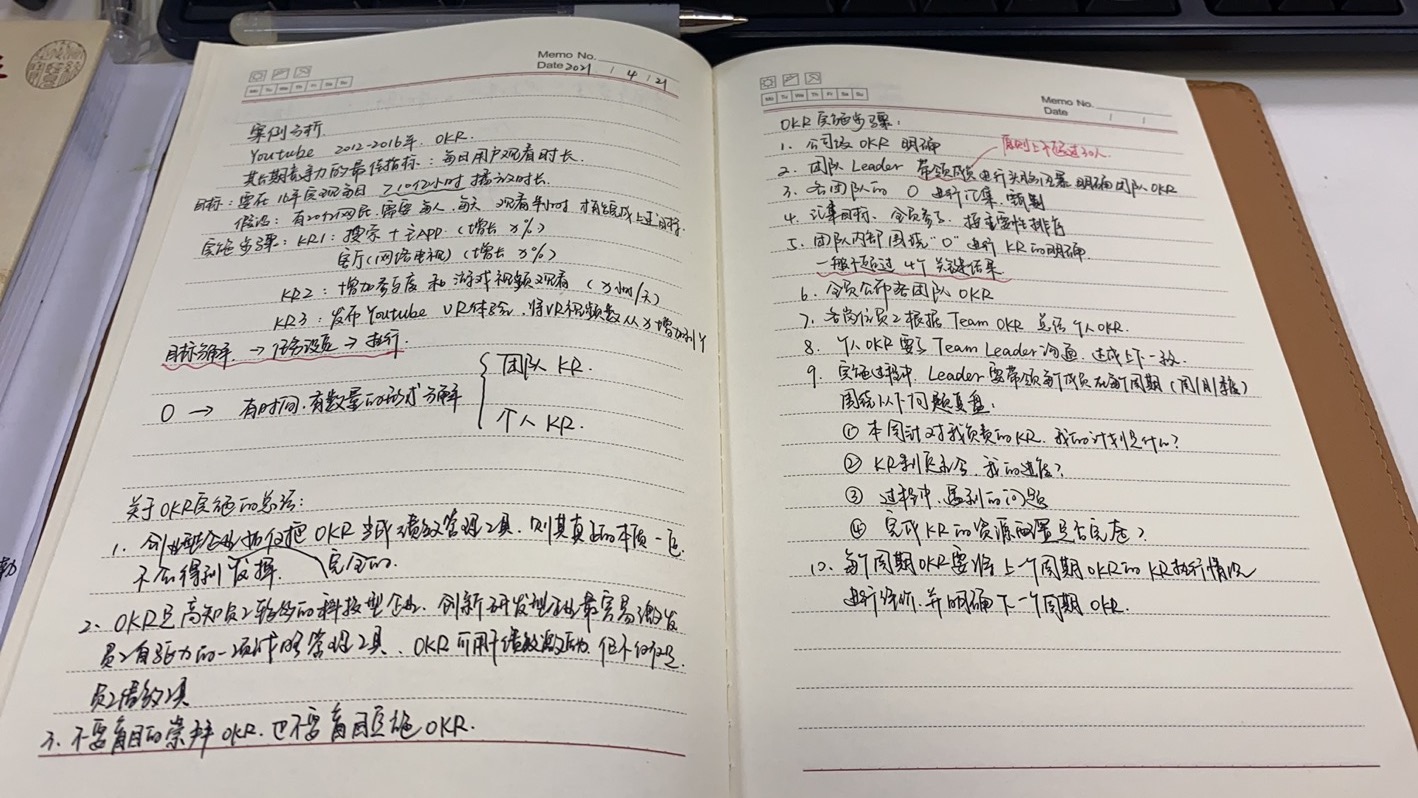 Memo No.
Date 2021 / 4 / 21
Mo Tu We Th Fr Sa Su
案例分析
Youtube 2012-2016年 OKR.
其长期竞争力的最佳指标：每日用户观看时长.
目标：要在16年实现每日 ≥10亿小时 播放时长.
假设：有20亿网民，需要每人，每天 观看半小时 才能达成上述目标.
实施步骤：KR1：搜索+主APP（增长 x%）
客厅（网络电视）（增长 x%）
KR2：增加参与度 和 游戏视频观看（x小时/天）
KR3：发布Youtube VR体验，将VR视频数从x增加到Y
目标分解 → 任务设定 → 执行.
O → 有时间、有数量的形式分解
团队 KR.
个人 KR.
关于OKR实施的总结：
1. 创业型企业如仅把OKR当成绩效管理工具，则其真正的本质一定
不会得到发挥. 完全的.
2. OKR是高知员工较多的科技型企业、创新研发型企业最容易激发
员工自驱力的一项战略管理工具、OKR可用于绩效激励，但不仅仅是
员工绩效工具
3. 不要盲目的崇拜OKR.也不要盲目实施OKR.
Mo Tu We Th Fr Sa Su
Memo No.
Date / /
OKR实施步骤：
1. 公司级OKR 明确
原则上不超过10人.
2. 团队 Leader 带领成员进行头脑风暴 明确团队OKR
3. 各团队的 O 进行汇集、
4. 汇集目标、全员参与、按重要性排序
5. 团队内部围绕"O"进行KR的明确
一般不超过 4个 关键结果
6. 全员公布各团队OKR
7. 各岗位员工根据Team OKR 总结个人OKR.
8. 个人OKR要与Team Leader沟通，达成上下一致.
9. 实施过程中，Leader要带领每个成员在每个周期（周/月/季度）
围绕以下问题复盘：
① 本周针对我负责的KR、我的计划是什么？
② KR到底如今、我的进度？
③ 过程中、遇到的问题
④ 完成KR的资源配置是否完壶？
10. 每个周期OKR要将上一个周期OKR的KR执行情况
进行评价、并明确下一个周期OKR.